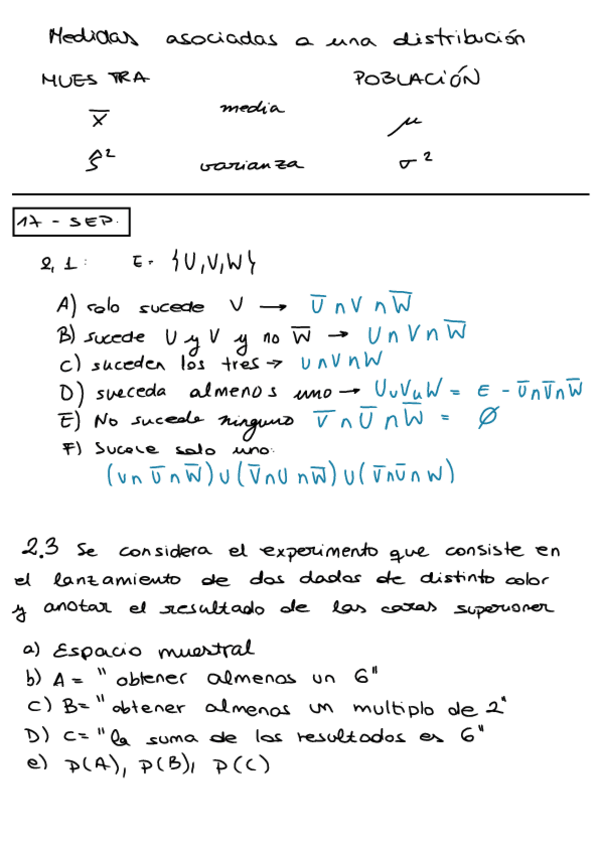 Medidas asociadas a una distribución
MUESTRA POBLACIÓN
x̅ media μ
ŝ² varianza σ²
17 - SEP.
2,1: E = {U,V,W}
A) solo sucede V → U̅ ∩ V ∩ W̅
B) sucede U y V y no W̅ → U ∩ V ∩ W̅
C) suceden los tres → U ∩ V ∩ W
D) suceda almenos uno → U∪V∪W = E - U̅∩V̅∩W̅
E) No sucede ninguno V̅ ∩ U̅ ∩ W̅ = ∅
F) Sucede solo uno:
(U∩ V̅ ∩ W̅) ∪ (V̅∩U ∩W̅) ∪ (V̅∩U̅∩ W)
2.3 Se considera el experimento que consiste en
el lanzamiento de dos dados de distinto color
y anotar el resultado de las caras superiores
a) Espacio muestral
b) A = "obtener almenos un 6"
C) B = "obtener almenos un multiplo de 2"
D) C = "la suma de los resultados es 6"
e) P(A), P(B), P(C)